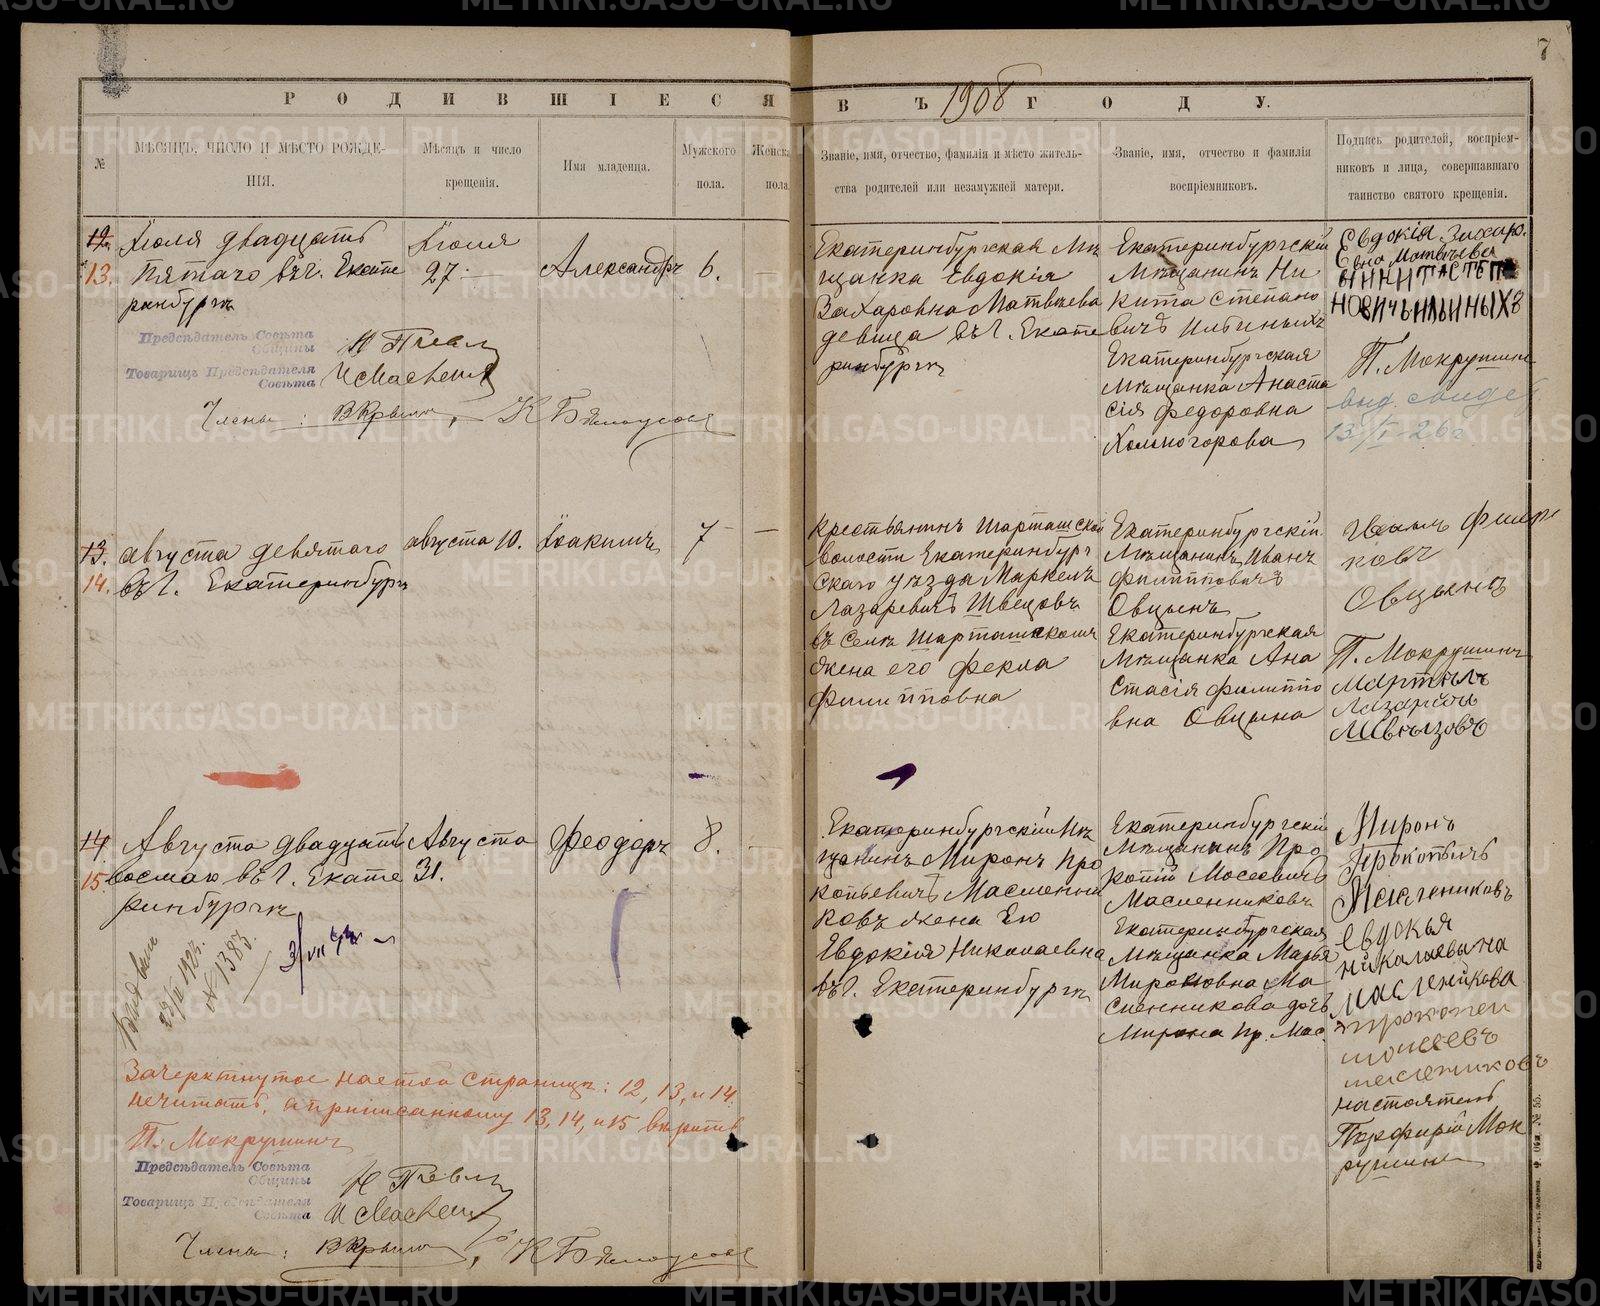 7
РОДИВШІЕСЯ ВЪ 1908 ГОДУ.
№
МѢСЯЦЪ, ЧИСЛО И МѢСТО РОЖДЕ-
НІЯ.
Мѣсяцъ и число
крещенія.
Имя младенца.
Мужского
пола.
Женск
пола
Званіе, имя, отчество, фамилія и мѣсто житель-
ства родителей или незамужней матери.
Званіе, имя, отчество и фамилія
воспріемниковъ.
Подпись родителей, воспріем-
никовъ и лица, совершавшаго
таинство святого крещенія.
12.
13.
Іюля двадцать
пятаго въ г. Екате
ринбургѣ
Іюля
27.
Александръ
6.
Екатеринбургская Мѣ
щанка Евдокія
Захаровна Матвѣева
девица въ г. Екате
ринбургѣ
Екатеринбургскій
Мѣщанинъ Ни
кита Степано
вичъ Ильиныхъ
Екатеринбургская
Мѣщанка Анаста
сія Федоровна
Холмогорова
Евдокія Захаро.
Евна Матвѣева
НИКИТА СТЕПА
НОВИЧЪ ИЛЬИНЫХЪ
П. Мокрушин
выд. свидет
13/I 26 г.
Предсѣдатель Совѣта
Общины
Товарищъ Предсѣдателя
Совѣта
Члены:
13.
14.
августа девятаго
въ г. Екатеринбургѣ
августа 10.
Іоакимъ
7
Крестьянинъ Шарташской
волости Екатеринбург
скаго уѣзда Маркелъ
Лазаревичъ Швецовъ
въ селѣ Шарташскомъ
жена его Фекла
Филипповна
Екатеринбургскій
Мѣщанинъ Иванъ
Филипповичъ
Овцынъ
Екатеринбургская
Мѣщанка Ана
стасія Филиппо
вна Овцына
Овцынъ
П. Мокрушинъ
14
15
Августа двадцать
восмаго въ г. Екате
ринбургѣ
Августа
31.
Феодоръ
8.
Екатеринбургскій Мѣ
щанинъ Миронъ Про
копьевичъ Масленни
ковъ жена Ею
Евдокія Николаевна
въ г. Екатеринбургѣ
Екатеринбургскій
Мѣщанинъ Про
копій Мосеевичъ
Масленниковъ
Екатеринбургская
Мѣщанка Марья
Мироновна Ма
сленникова дочь
Мирона Пр. Мас.
Миронъ
Прокопьичъ
Масленниковъ
Евдокья
николаевна
масленикова
прокопей
маслениковъ
настоятель
Порфирій Мок
рушинъ
№ 1383.
Зачеркнутое на етой страницѣ: 12, 13, и 14.
нечитать, а приписанному 13, 14, и 15 вѣрить
П. Мокрушинъ
Предсѣдатель Совѣта
Общины
Товарищъ Предсѣдателя
Совѣта
Члены:
METRIKI.GASO-URAL.RU